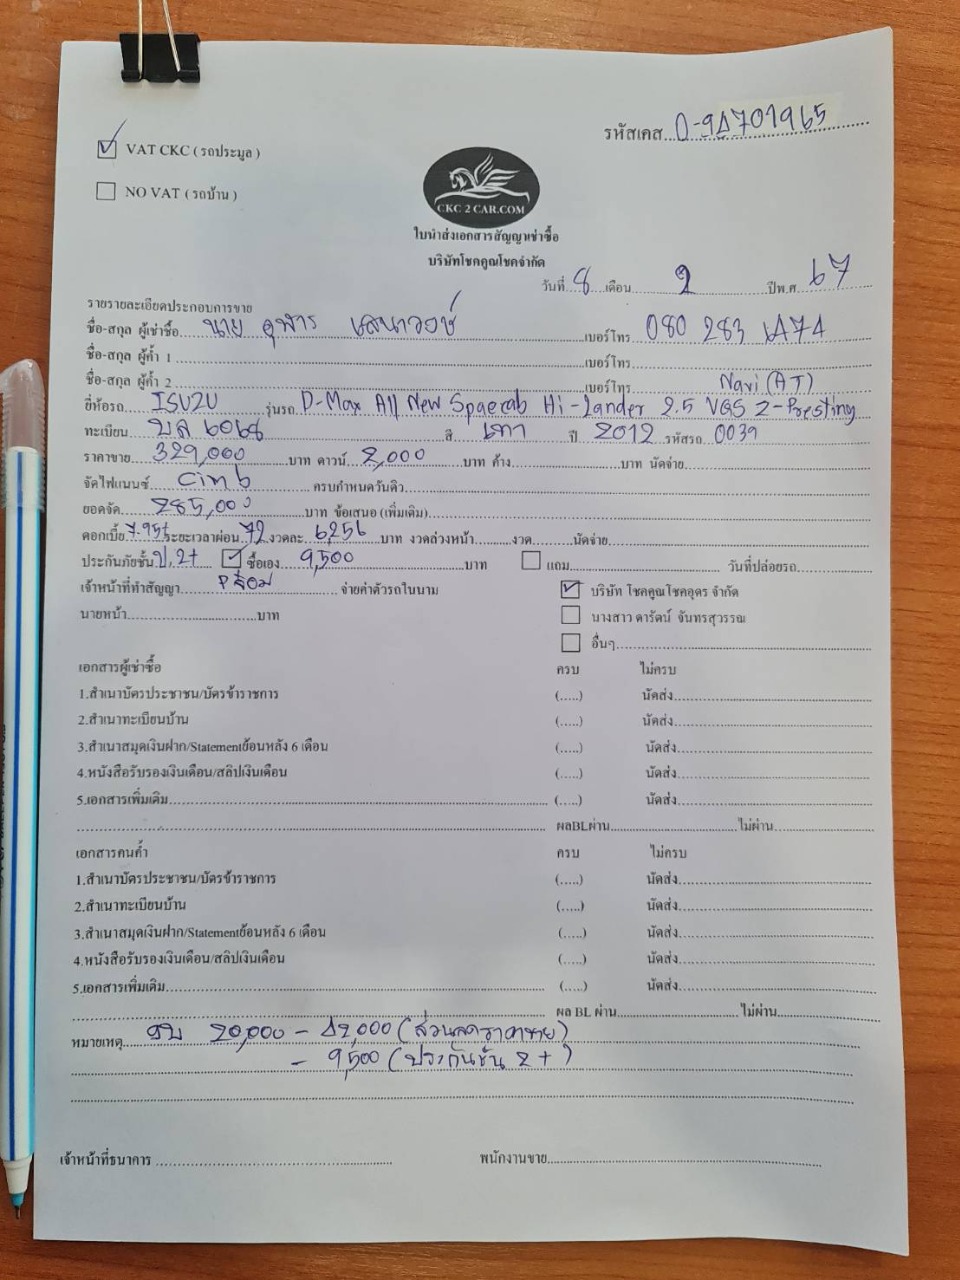 รหัสเคส 0-94701965
VAT CKC ( รถประมูล )
NO VAT ( รถบ้าน )
CKC 2 CAR.COM
ใบนำส่งเอกสารสัญญาเช่าซื้อ
บริษัทโชคคูณโชคจำกัด
วันที่ 8 เดือน 2 ปีพ.ศ 67
รายรายละเอียดประกอบการขาย
ชื่อ-สกุล ผู้เช่าซื้อ นาย จุฬาร เสนาวงษ์ เบอร์โทร 080 283
ชื่อ-สกุล ผู้ค้ำ 1 เบอร์โทร
ชื่อ-สกุล ผู้ค้ำ 2 เบอร์โทร Navi (AT)
ยี่ห้อรถ ISUZU รุ่นรถ D-Max All New Spaecab Hi-Lander 2.5 VGS Z-Presting
ทะเบียน บล 6068 สี เทา ปี 2012 รหัสรถ 0039
ราคาขาย 329,000 บาท ดาวน์ 2,000 บาท ค้าง บาท นัดจ่าย
จัดไฟแนนซ์ cimb ครบกำหนดวันดิว
ยอดจัด 285,000 บาท ข้อเสนอ (เพิ่มเติม)
ดอกเบี้ย 7.95% ระยะเวลาผ่อน 72 งวดละ 6256 บาท งวดล่วงหน้า งวด นัดจ่าย
ประกันภัยชั้น ป.2+ ซื้อเอง 9,500 บาท แถม วันที่ปล่อยรถ
เจ้าหน้าที่ทำสัญญา จ่ายค่าตัวรถในนาม บริษัท โชคคูณโชคอุดร จำกัด
นายหน้า บาท นางสาว ดารัตน์ จันทรสุวรรณ
อื่นๆ
เอกสารผู้เช่าซื้อ ครบ ไม่ครบ
1.สำเนาบัตรประชาชน/บัตรข้าราชการ (.....) นัดส่ง
2.สำเนาทะเบียนบ้าน (.....) นัดส่ง
3.สำเนาสมุดเงินฝาก/Statementย้อนหลัง 6 เดือน (.....) นัดส่ง
4.หนังสือรับรองเงินเดือน/สลิปเงินเดือน (.....) นัดส่ง
5.เอกสารเพิ่มเติม (.....) นัดส่ง
ผลBLผ่าน ไม่ผ่าน
เอกสารคนค้ำ ครบ ไม่ครบ
1.สำเนาบัตรประชาชน/บัตรข้าราชการ (.....) นัดส่ง
2.สำเนาทะเบียนบ้าน (.....) นัดส่ง
3.สำเนาสมุดเงินฝาก/Statementย้อนหลัง 6 เดือน (.....) นัดส่ง
4.หนังสือรับรองเงินเดือน/สลิปเงินเดือน (.....) นัดส่ง
5.เอกสารเพิ่มเติม (.....) นัดส่ง
ผล BL ผ่าน ไม่ผ่าน
หมายเหตุ งบ 20,000 - 42,000 (ส่วนลดราคาขาย)
- 9,500 (ประกันชั้น 2+)
เจ้าหน้าที่ธนาคาร พนักงานขาย